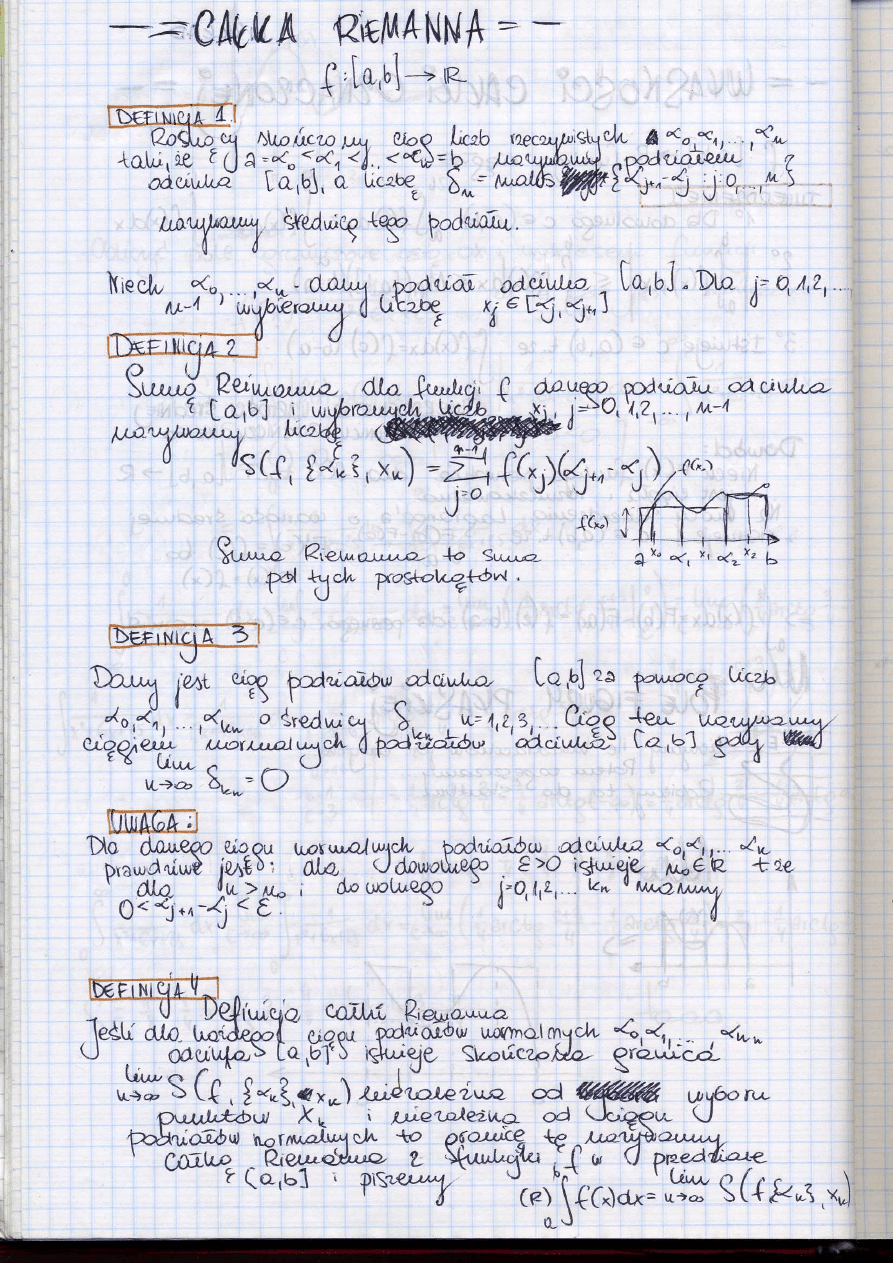 -=CAŁKA RIEMANNA=-
f:[a,b]→R
DEFINICJA 1.
Rosnący skończony ciąg liczb rzeczywistych α₀,α₁,...,αₙ
taki, że a=α₀<α₁<...<αₙ=b nazywamy podziałem
odcinka [a,b], a liczbę δₙ = maks {αⱼ₊₁-αⱼ : j=0,...,n}
nazywamy średnicą tego podziału.
Niech α₀,...,αₙ - dany podział odcinka [a,b]. Dla j=0,1,2,...
n-1 wybieramy liczbę xⱼ∈[αⱼ,αⱼ₊₁]
DEFINICJA 2
Sumą Reimanna dla funkcji f danego podziału odcinka
[a,b] i wybranych liczb xⱼ, j=0,1,2,...,n-1
nazywamy liczbę
S(f,{αₖ},xₖ) = ∑ⱼ₌₀ⁿ⁻¹ f(xⱼ)(αⱼ₊₁-αⱼ)
f(x₁)
f(x₀)
a x₀ α₁ x₁ α₂ x₂ b
Suma Riemanna to suma
pól tych prostokątów.
DEFINICJA 3
Dany jest ciąg podziałów odcinka [a,b] za pomocą liczb
α₀,α₁,...,αₖₙ o średnicy δₖₙ n=1,2,3,... Ciąg ten nazywamy
ciągiem normalnych podziałów odcinka [a,b] gdy
lim n→∞ δₖₙ=0
UWAGA:
Dla danego ciągu normalnych podziałów odcinka α₀,α₁,...αₙ
prawdziwe jest: dla dowolnego ε>0 istnieje n₀∈R t że
dla n>n₀ i dowolnego j=0,1,2,... kₙ mamy
0<αⱼ₊₁-αⱼ<ε.
DEFINICJA 4.
Definicja całki Riemanna
Jeśli dla każdego ciągu podziałów normalnych α₀,α₁,...,αₙₙ
odcinka [a,b] istnieje skończona granica
lim n→∞ S(f,{αₖ},xₖ) niezależna od wyboru
punktów Xₖ i niezależna od ciągu
podziałów normalnych to granicę tę nazywamy
całką Riemanna z funkcji f w przedziale
[a,b] i piszemy
(R) ∫ₐᵇ f(x)dx = lim n→∞ S(f,{αₖ},xₖ)